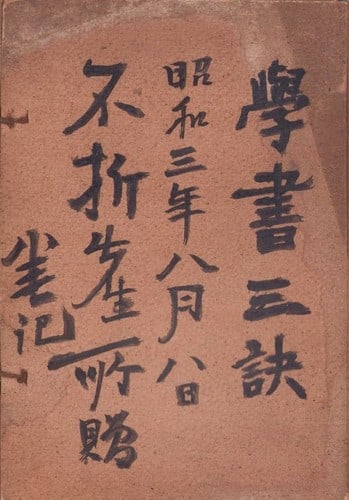 學書三訣
昭和三年八月八日
不折先生所贈
筆记